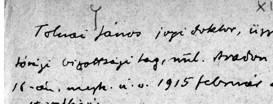 Tolnai János jogi doktor, ügy
bizottsági tag, szül. Aradon
16-án, megh. u. o. 1915 február